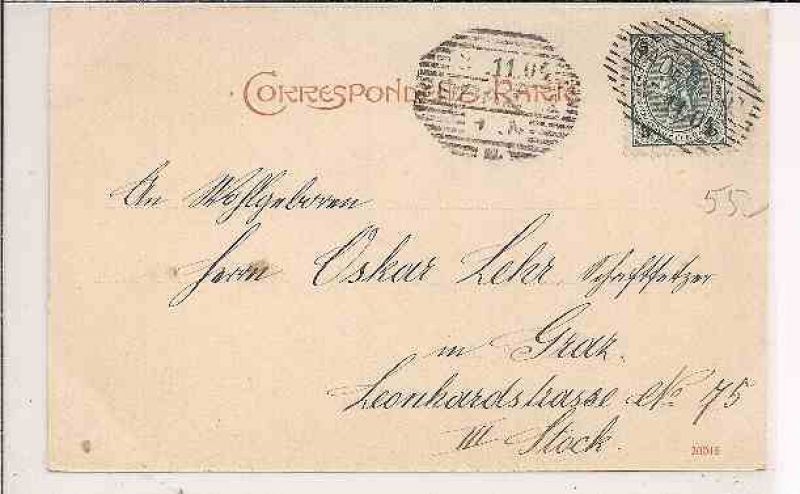 CORRESPONDENZ-KARTE
11.04
5 5
An Wohlgeboren
55.-
Herrn Oskar Lehr, Schriftsetzer
in Graz.
Leonhardstrasse No 75
III Stock.